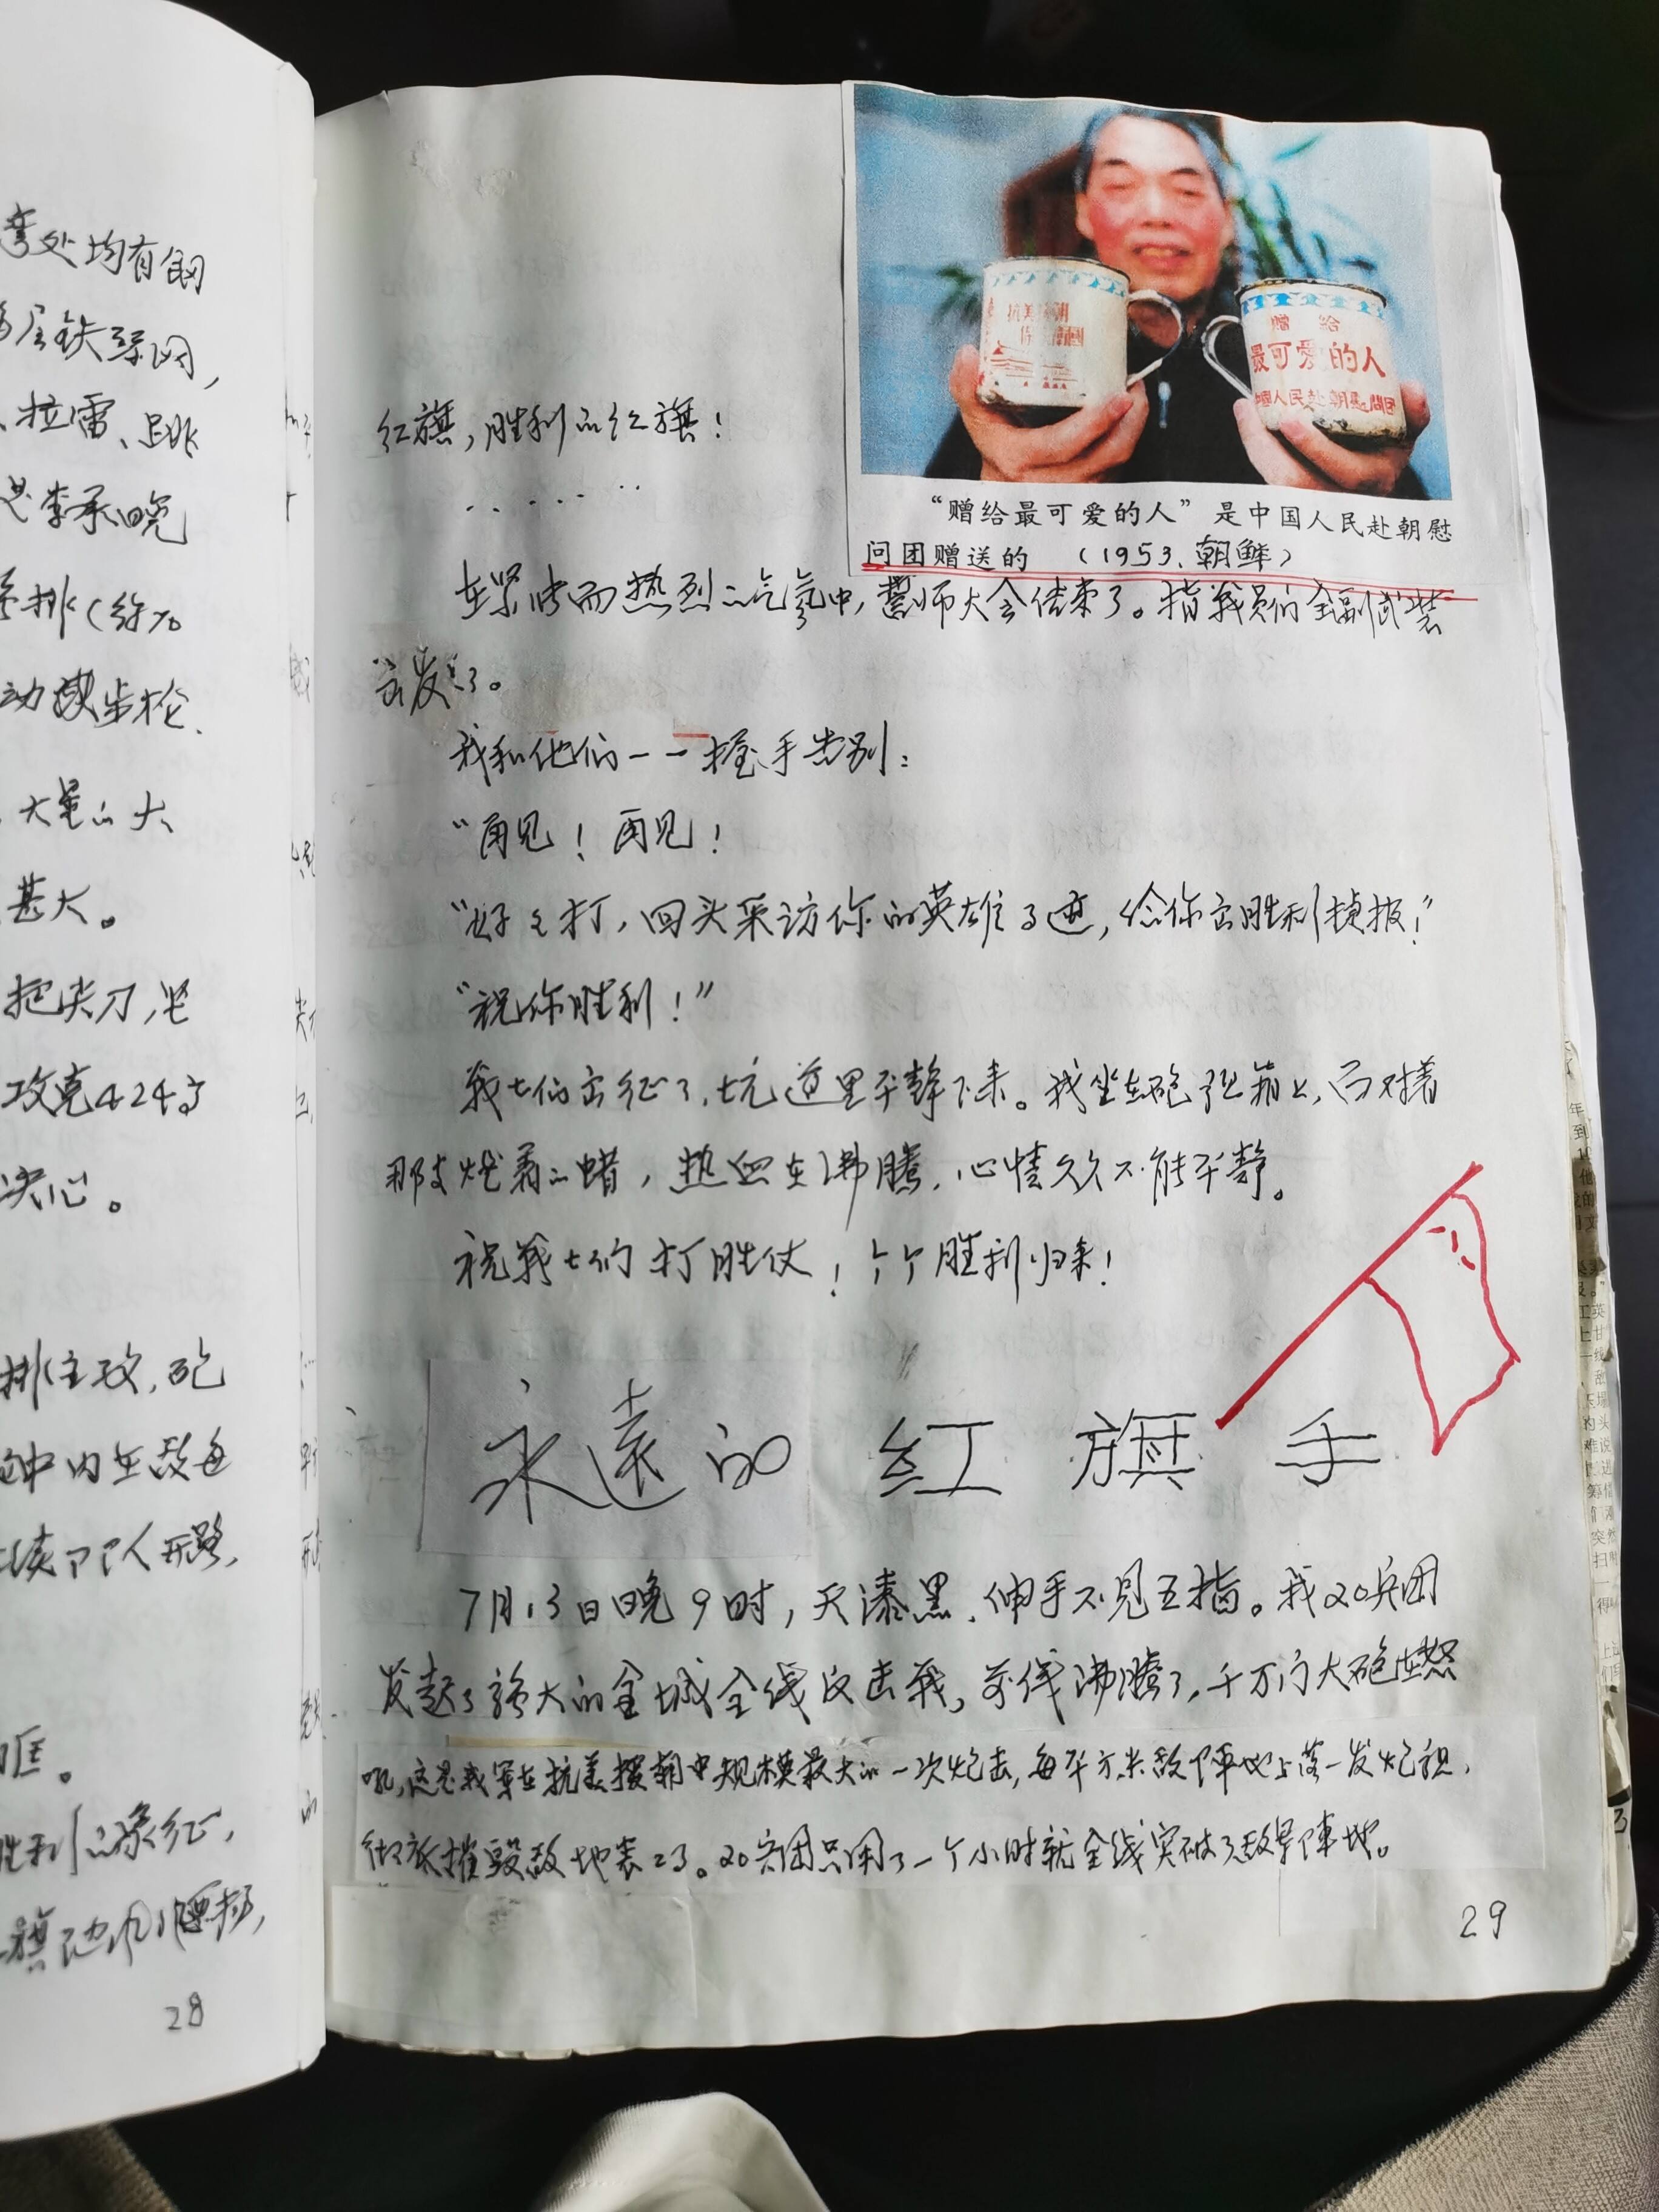 弯处均有钢
层铁丝网，
、拉雷、跳
李承晚
动步枪、
大量的火
甚大。
把尖刀，坚
攻克424高
决心。
排主攻，砲
28
抗美援朝
保家衛國
贈给
最可爱的人
中國人民赴朝慰問团
“赠给最可爱的人”是中国人民赴朝慰
问团赠送的 （1953.朝鲜）
红旗，胜利的红旗！
……
在紧张而热烈的气氛中，誓师大会结束了。指战员们全副武装
出发了。
我和他们一一握手告别：
“再见！再见！
“好好打，回头采访你的英雄事迹，给你出胜利捷报！”
“祝你胜利！”
战士们出征了，坑道里平静下来。我坐在砲弹箱上，面对着
那支燃着的蜡，热血在沸腾，心情久久不能平静。
祝战士们打胜仗！个个胜利归来！
永遠的红旗手
7月13日晚9时，天漆黑，伸手不见五指。我20兵团
发起了强大的金城全线反击战，前线沸腾了，千万门大砲在怒
吼，这是我军在抗美援朝中规模最大的一次炮击，每平方米敌阵地上落一发炮弹，
彻底摧毁敌地表工事。20兵团只用了一个小时就全线突破了敌军阵地。
29